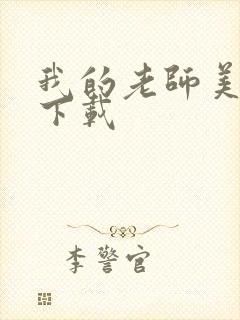 我的老師美
下載
李警官